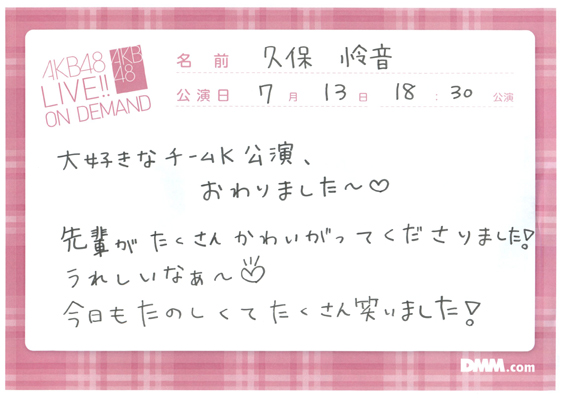 AKB48
LIVE!!
ON DEMAND
AKB
48
名前 久保 怜音
公演日 7月 13日 18:30 公演
大好きなチームK公演、
おわりました〜♡
先輩がたくさんかわいがってくださりました!
うれしいなぁ〜♡
今日もたのしくてたくさん笑いました!
DMM.com